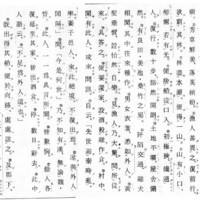 樹、芳華鮮美、落英繽紛。漁人甚異之。復前行、
欲窮其林。林盡水源、便得一山。山有小口、
髣髴若有光。便捨船從口入。初極狹、纔通
人。復行數十步、豁然開朗。土地平曠、屋舍儼
然、有良田美池桑竹之屬。阡陌交通、雞犬
相聞。其中往來種作、男女衣著、悉如外人。黃
髮垂髫、並怡然自樂。見漁人、乃大驚、問所從
來。具答之。便要還家、設酒殺雞作食。村中
聞有此人、咸來問訊。自云、先世避秦時亂、
率妻子邑人、來此絕境、不復出焉、遂與外人
間隔。問今是何世、乃不知有漢、無論魏
晉。此人一一爲具言所聞、皆歎惋。餘人各
復延至其家、皆出酒食。停數日、辭去。此中
人語云、不足爲外人道也。
既出、得其船、便扶向路、處處誌之。